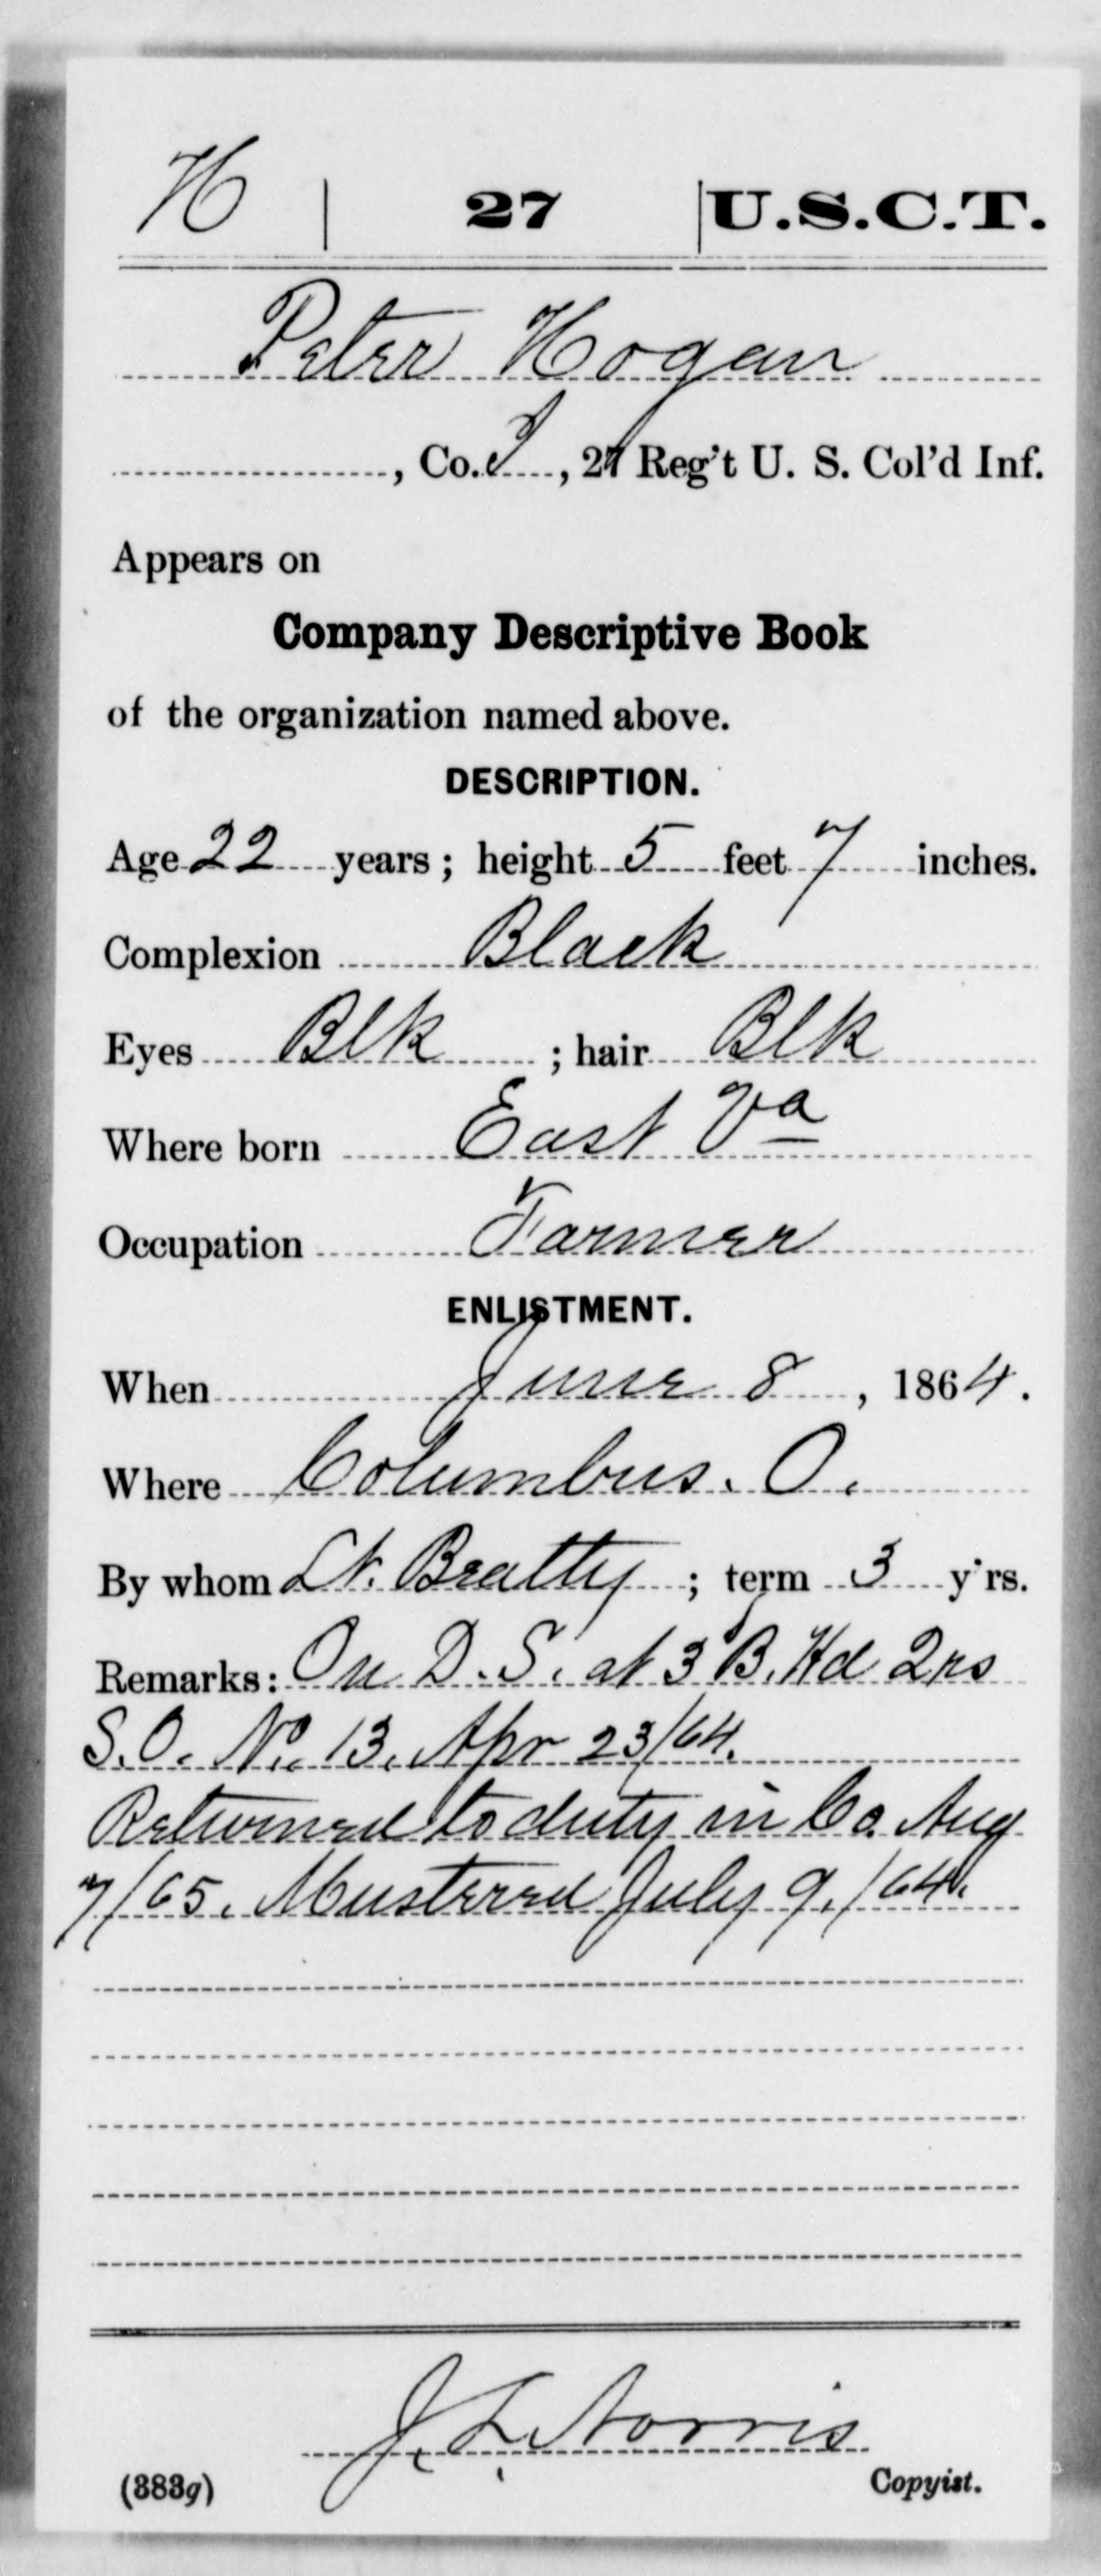 H | 27 | U.S.C.T.
Peter Hogan
, Co. I, 27 Reg't U. S. Col'd Inf.
Appears on
Company Descriptive Book
of the organization named above.
DESCRIPTION.
Age 22 years; height 5 feet 7 inches.
Complexion Black
Eyes Blk ; hair Blk
Where born East Va
Occupation Farmer
ENLISTMENT.
When June 8, 1864.
Where Columbus. O.
By whom Lt. Beatty ; term 3 y'rs.
Remarks: On D. S. at 3 B. Hd Qrs
S.O. No. 13. Apr 23/64.
Returned to duty in Co. Aug
7/65. Mustered July 9./64.
J. L. Norris
(383g) Copyist.